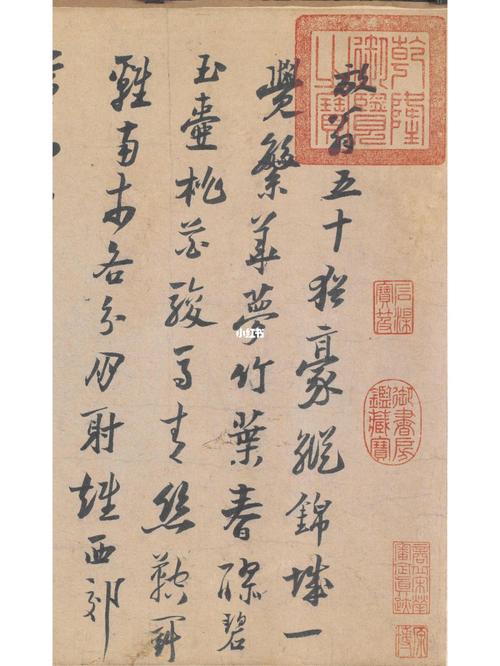 放翁五十猶豪縱錦城一
覺繁華夢竹葉春醪碧
玉壺桃花駿馬青絲鞚鬥
雞南市各分朋射雉西郊
乾隆御覽之寶
石渠寶笈
御書房鑑藏寶
小红书